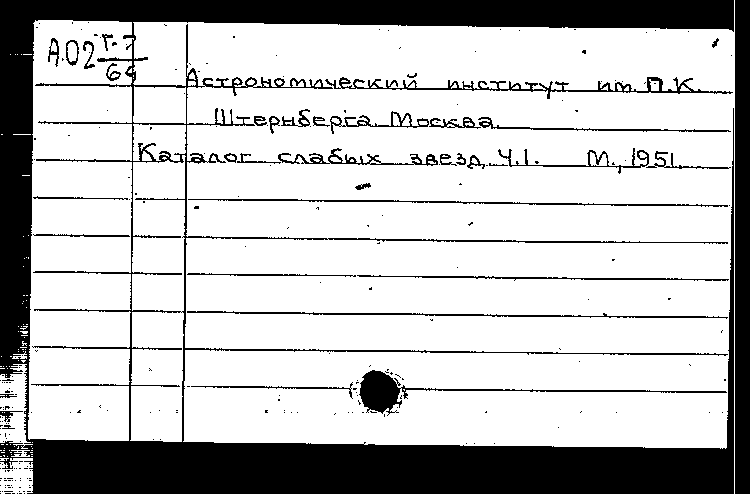 А02 Г-7
64
Астрономический институт им. П.К.
Штернберга. Москва.
Каталог слабых звезд, Ч.1. М., 1951.